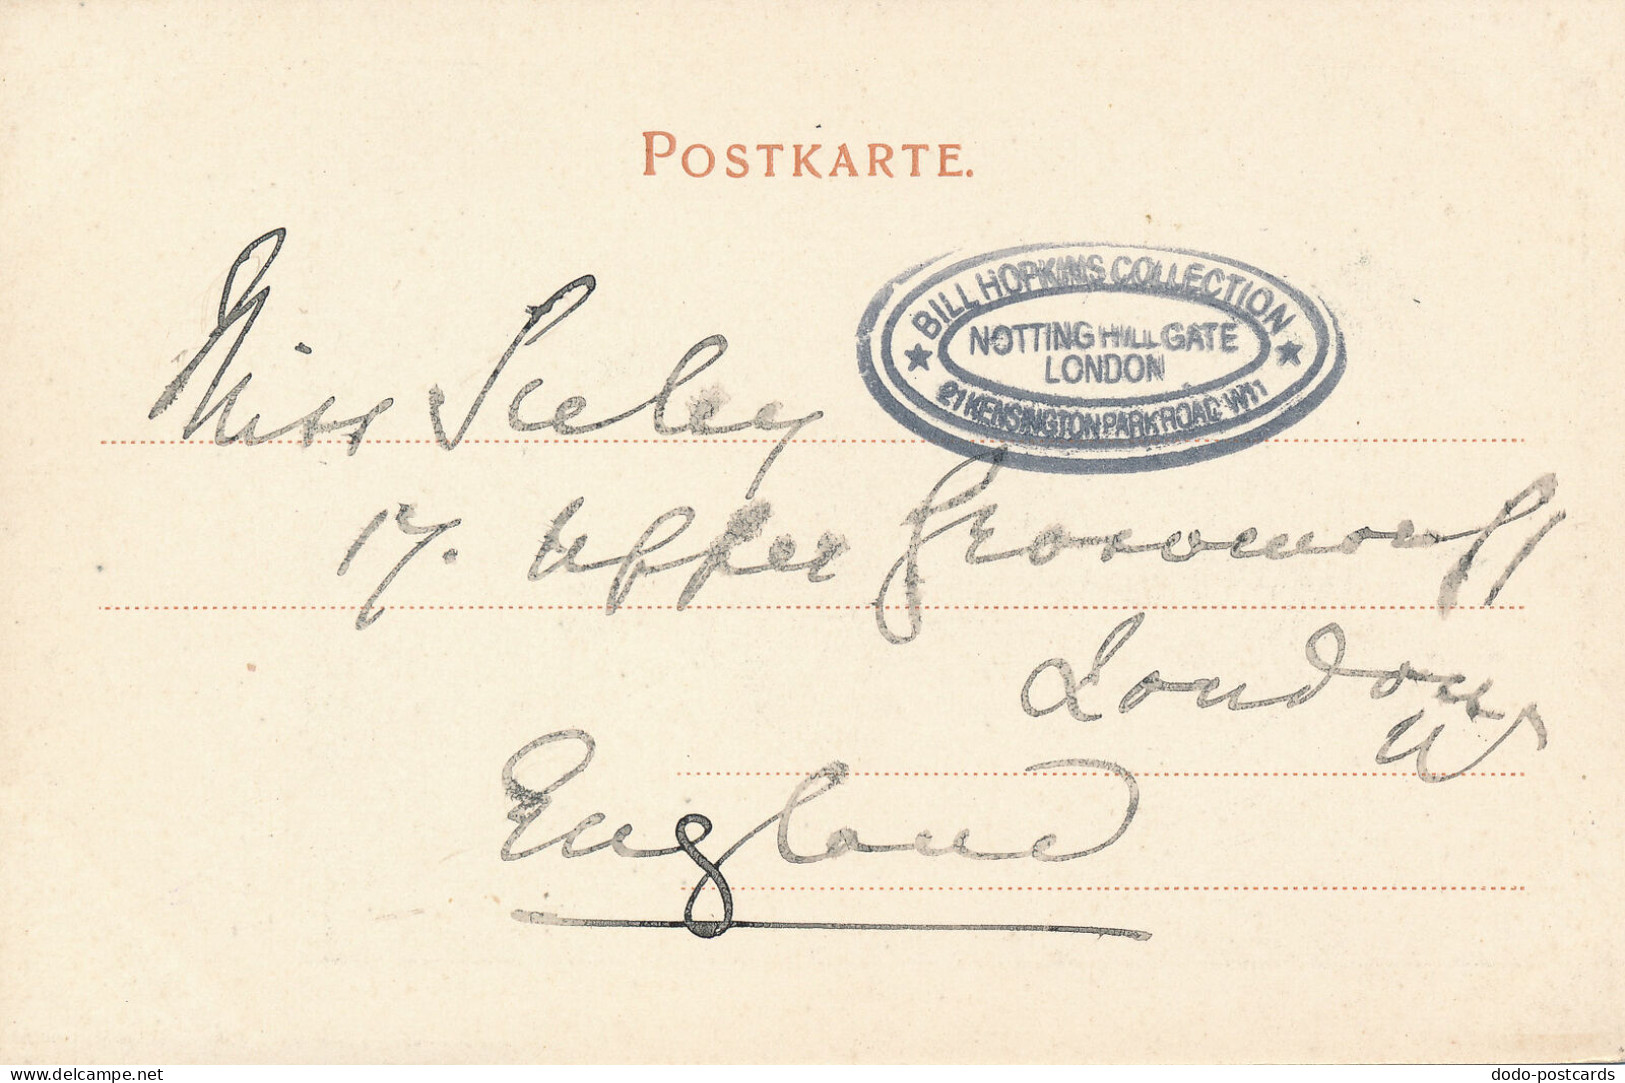 POSTKARTE.
BILL HOPKINS COLLECTION
NOTTING HILL GATE
LONDON
21 KENSINGTON PARK ROAD W11
Miss Seeley
17. Upper Grosvenor St
London
W
England
delcampe.net
dodo-postcards